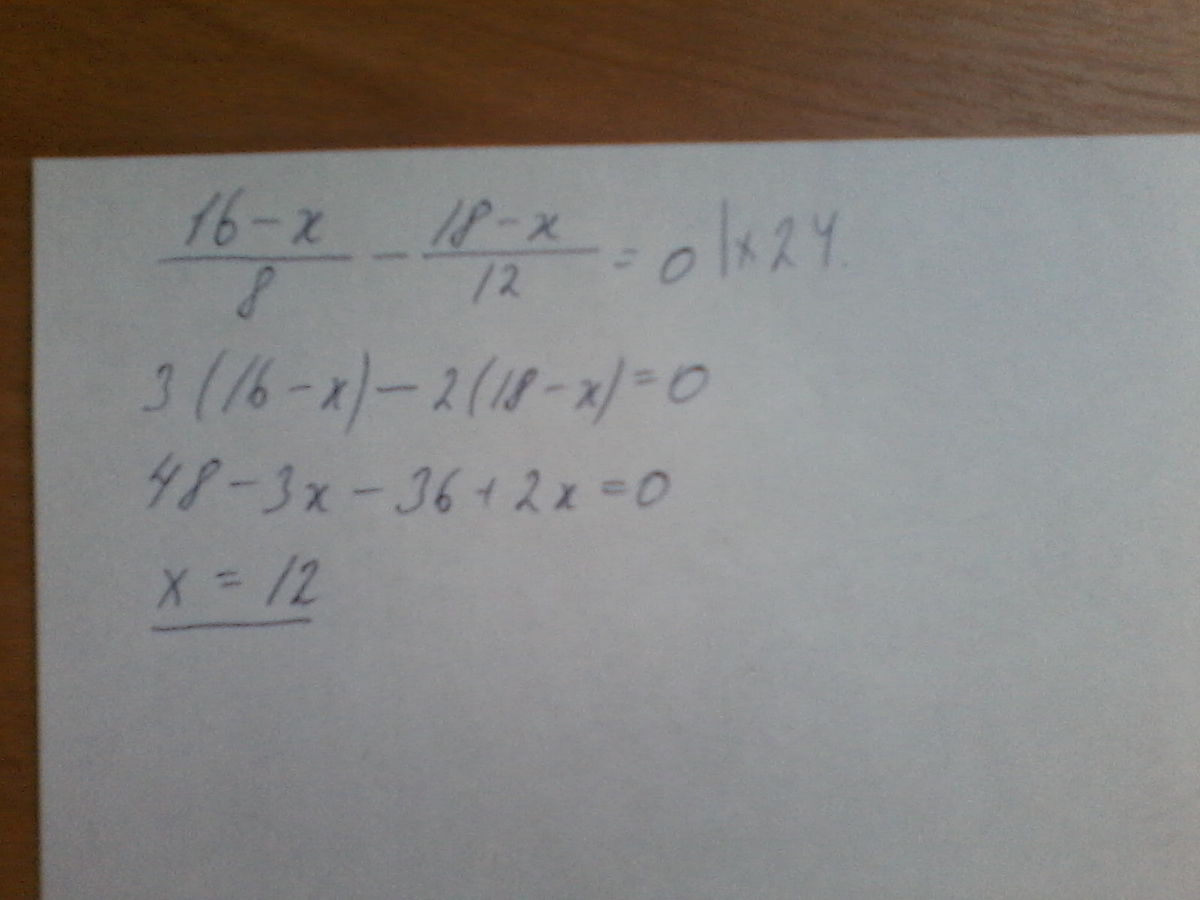 16-x/8 - 18-x/12 = 0 |x24
3(16-x)-2(18-x)=0
48-3x-36+2x=0
x = 12